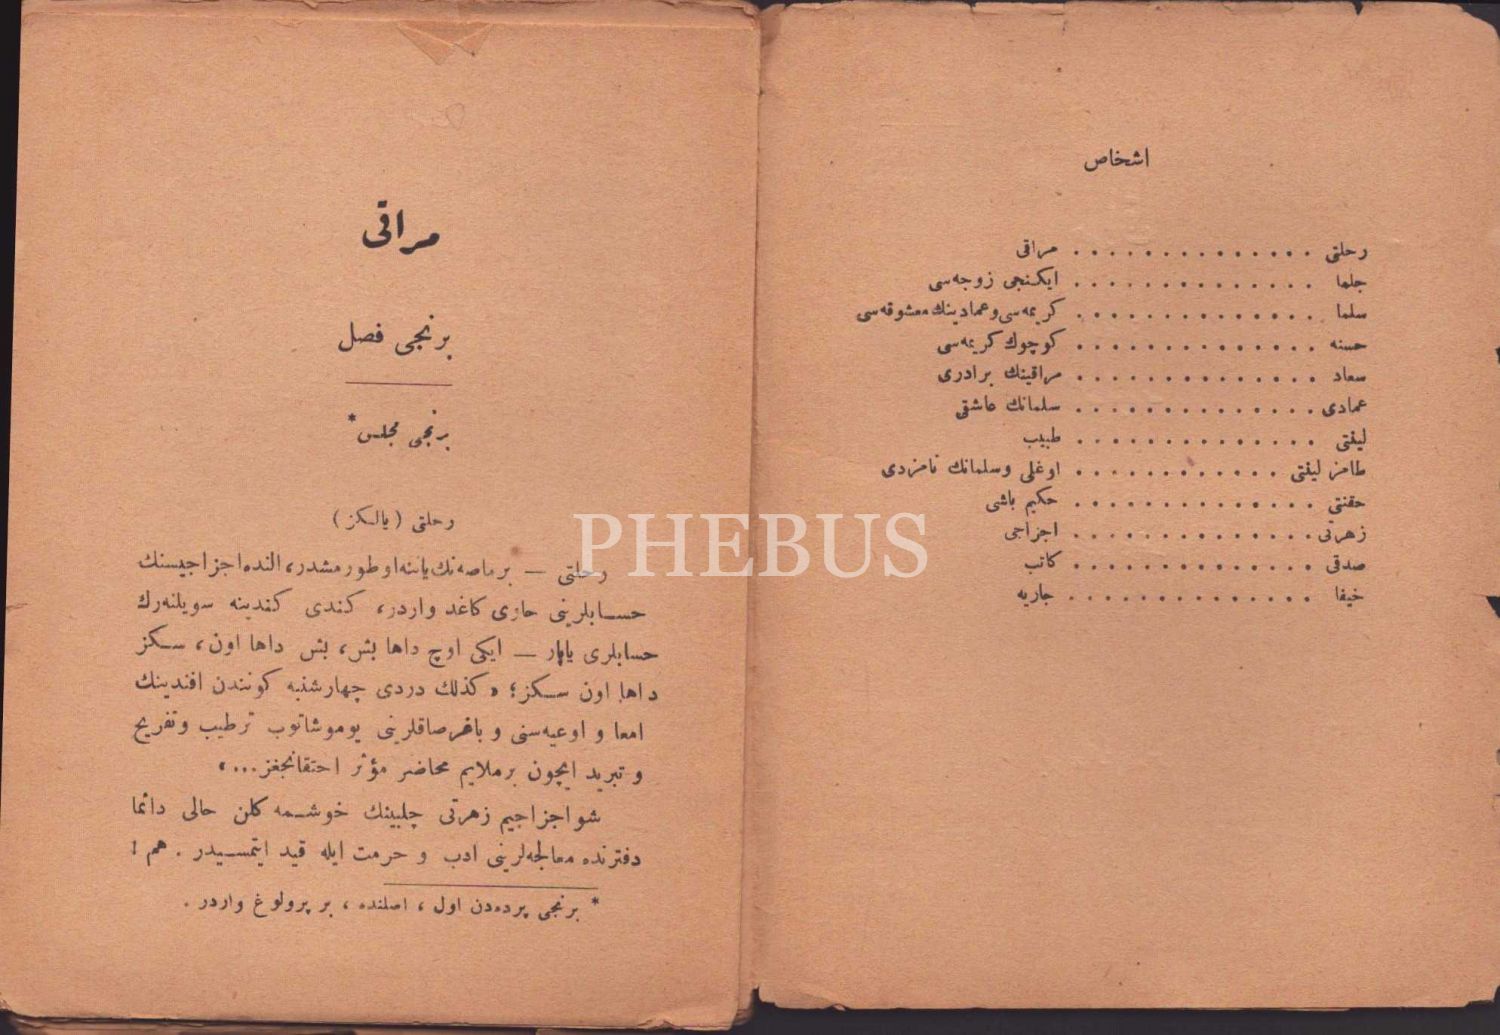 اشخاص
رحلتی . . . . . . . . . . . . . . مراقی
جلما . . . . . . . . . . . . . . ایکنجی زوجه‌سی
سلما . . . . . . . . . . . . . . کریمه‌سی و عمادینك معشوقه‌سی
حسنه . . . . . . . . . . . . . . کوچوك کریمه‌سی
سعاد . . . . . . . . . . . . . . مراقینك برادری
عمادی . . . . . . . . . . . . . . سلمانك عاشقی
لیفتی . . . . . . . . . . . . . . طبیب
طامز لیفتی . . . . . . . . . . . . اوغلی وسلمانك نامزدی
حقنتی . . . . . . . . . . . . . . حکیم باشی
زهرتی . . . . . . . . . . . . . . اجزاجی
صدقی . . . . . . . . . . . . . . کاتب
خیفا . . . . . . . . . . . . . . جاریه
مراقی
برنجی فصل
برنجی مجلس*
رحلتی (یالکز)
رحلتی — بر ماصه‌نك یاننه اوطورمشدر، النده اجزاجیسنك
حسابلرینی حاوی کاغد واردر، کندی کندینه سویلنه‌رك
حسابلری یاپار — ایکی اوچ داها بش، بش داها اون، سکز
داها اون سکز؛ «کذلك دردی چهارشنبه کونندن افندینك
امعا و اوعیه‌سنی و باغرصاقلرینی یوموشاتوب ترطیب وتفریح
و تبرید ایچون برملایم محاضر مؤثر احتقانجغز...»
شو اجزاجیم زهرتی چلبینك خوشمه کلن حالی دائما
دفترنده معالجه‌لرینی ادب و حرمت ایله قید ایتمسیدر . هم !
* برنجی پرده‌دن اول ، اصلنده ، بر پرولوغ واردر .
PHEBUS